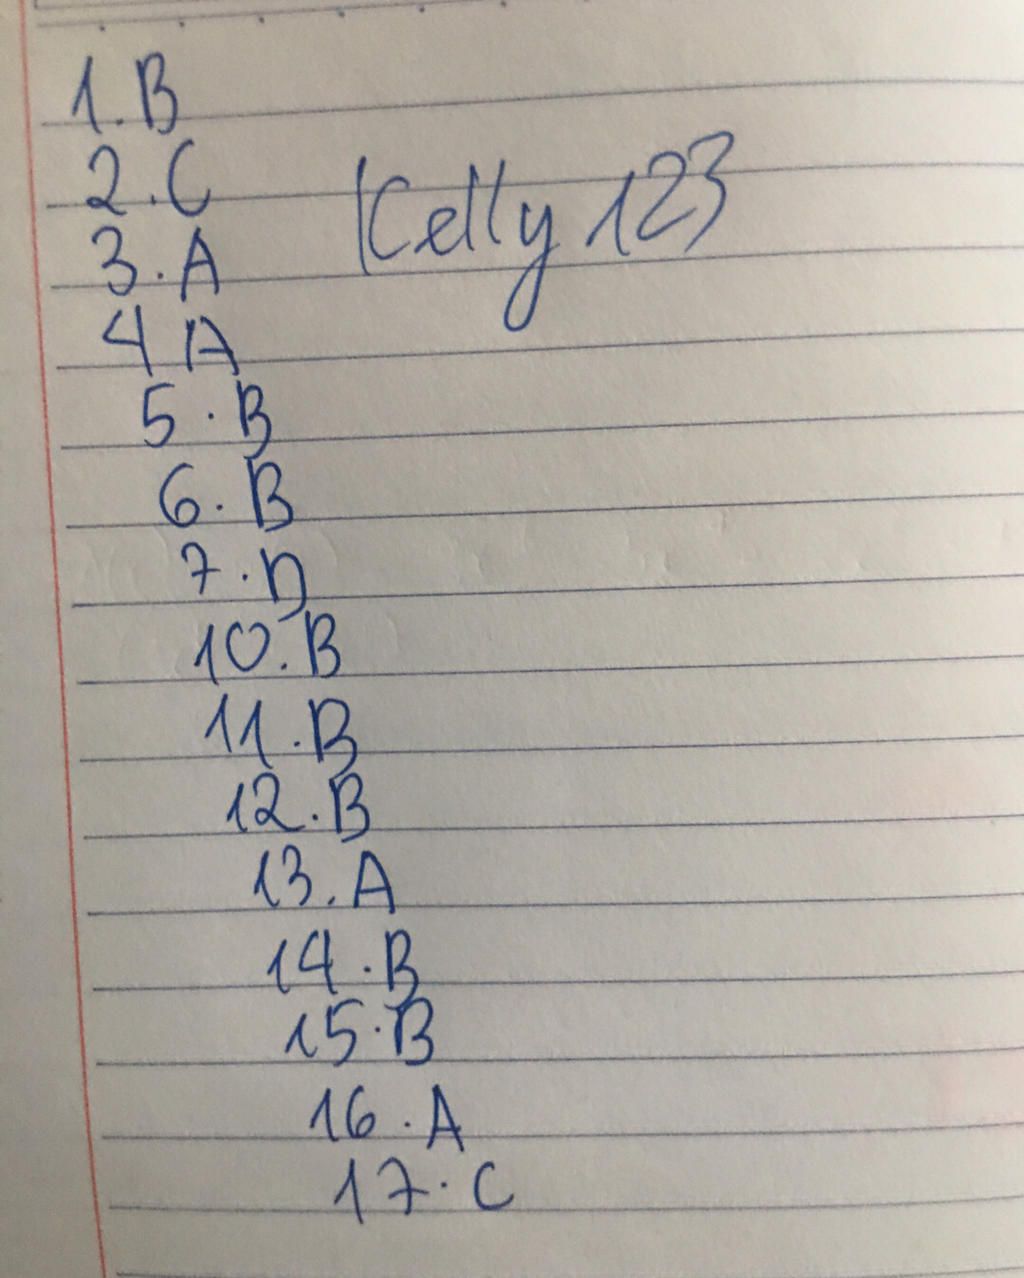 1. B
2. C
Kelly 123
3. A
4 A
5. B
6. B
7. D
10. B
11. B
12. B
13. A
14. B
15. B
16. A
17. C